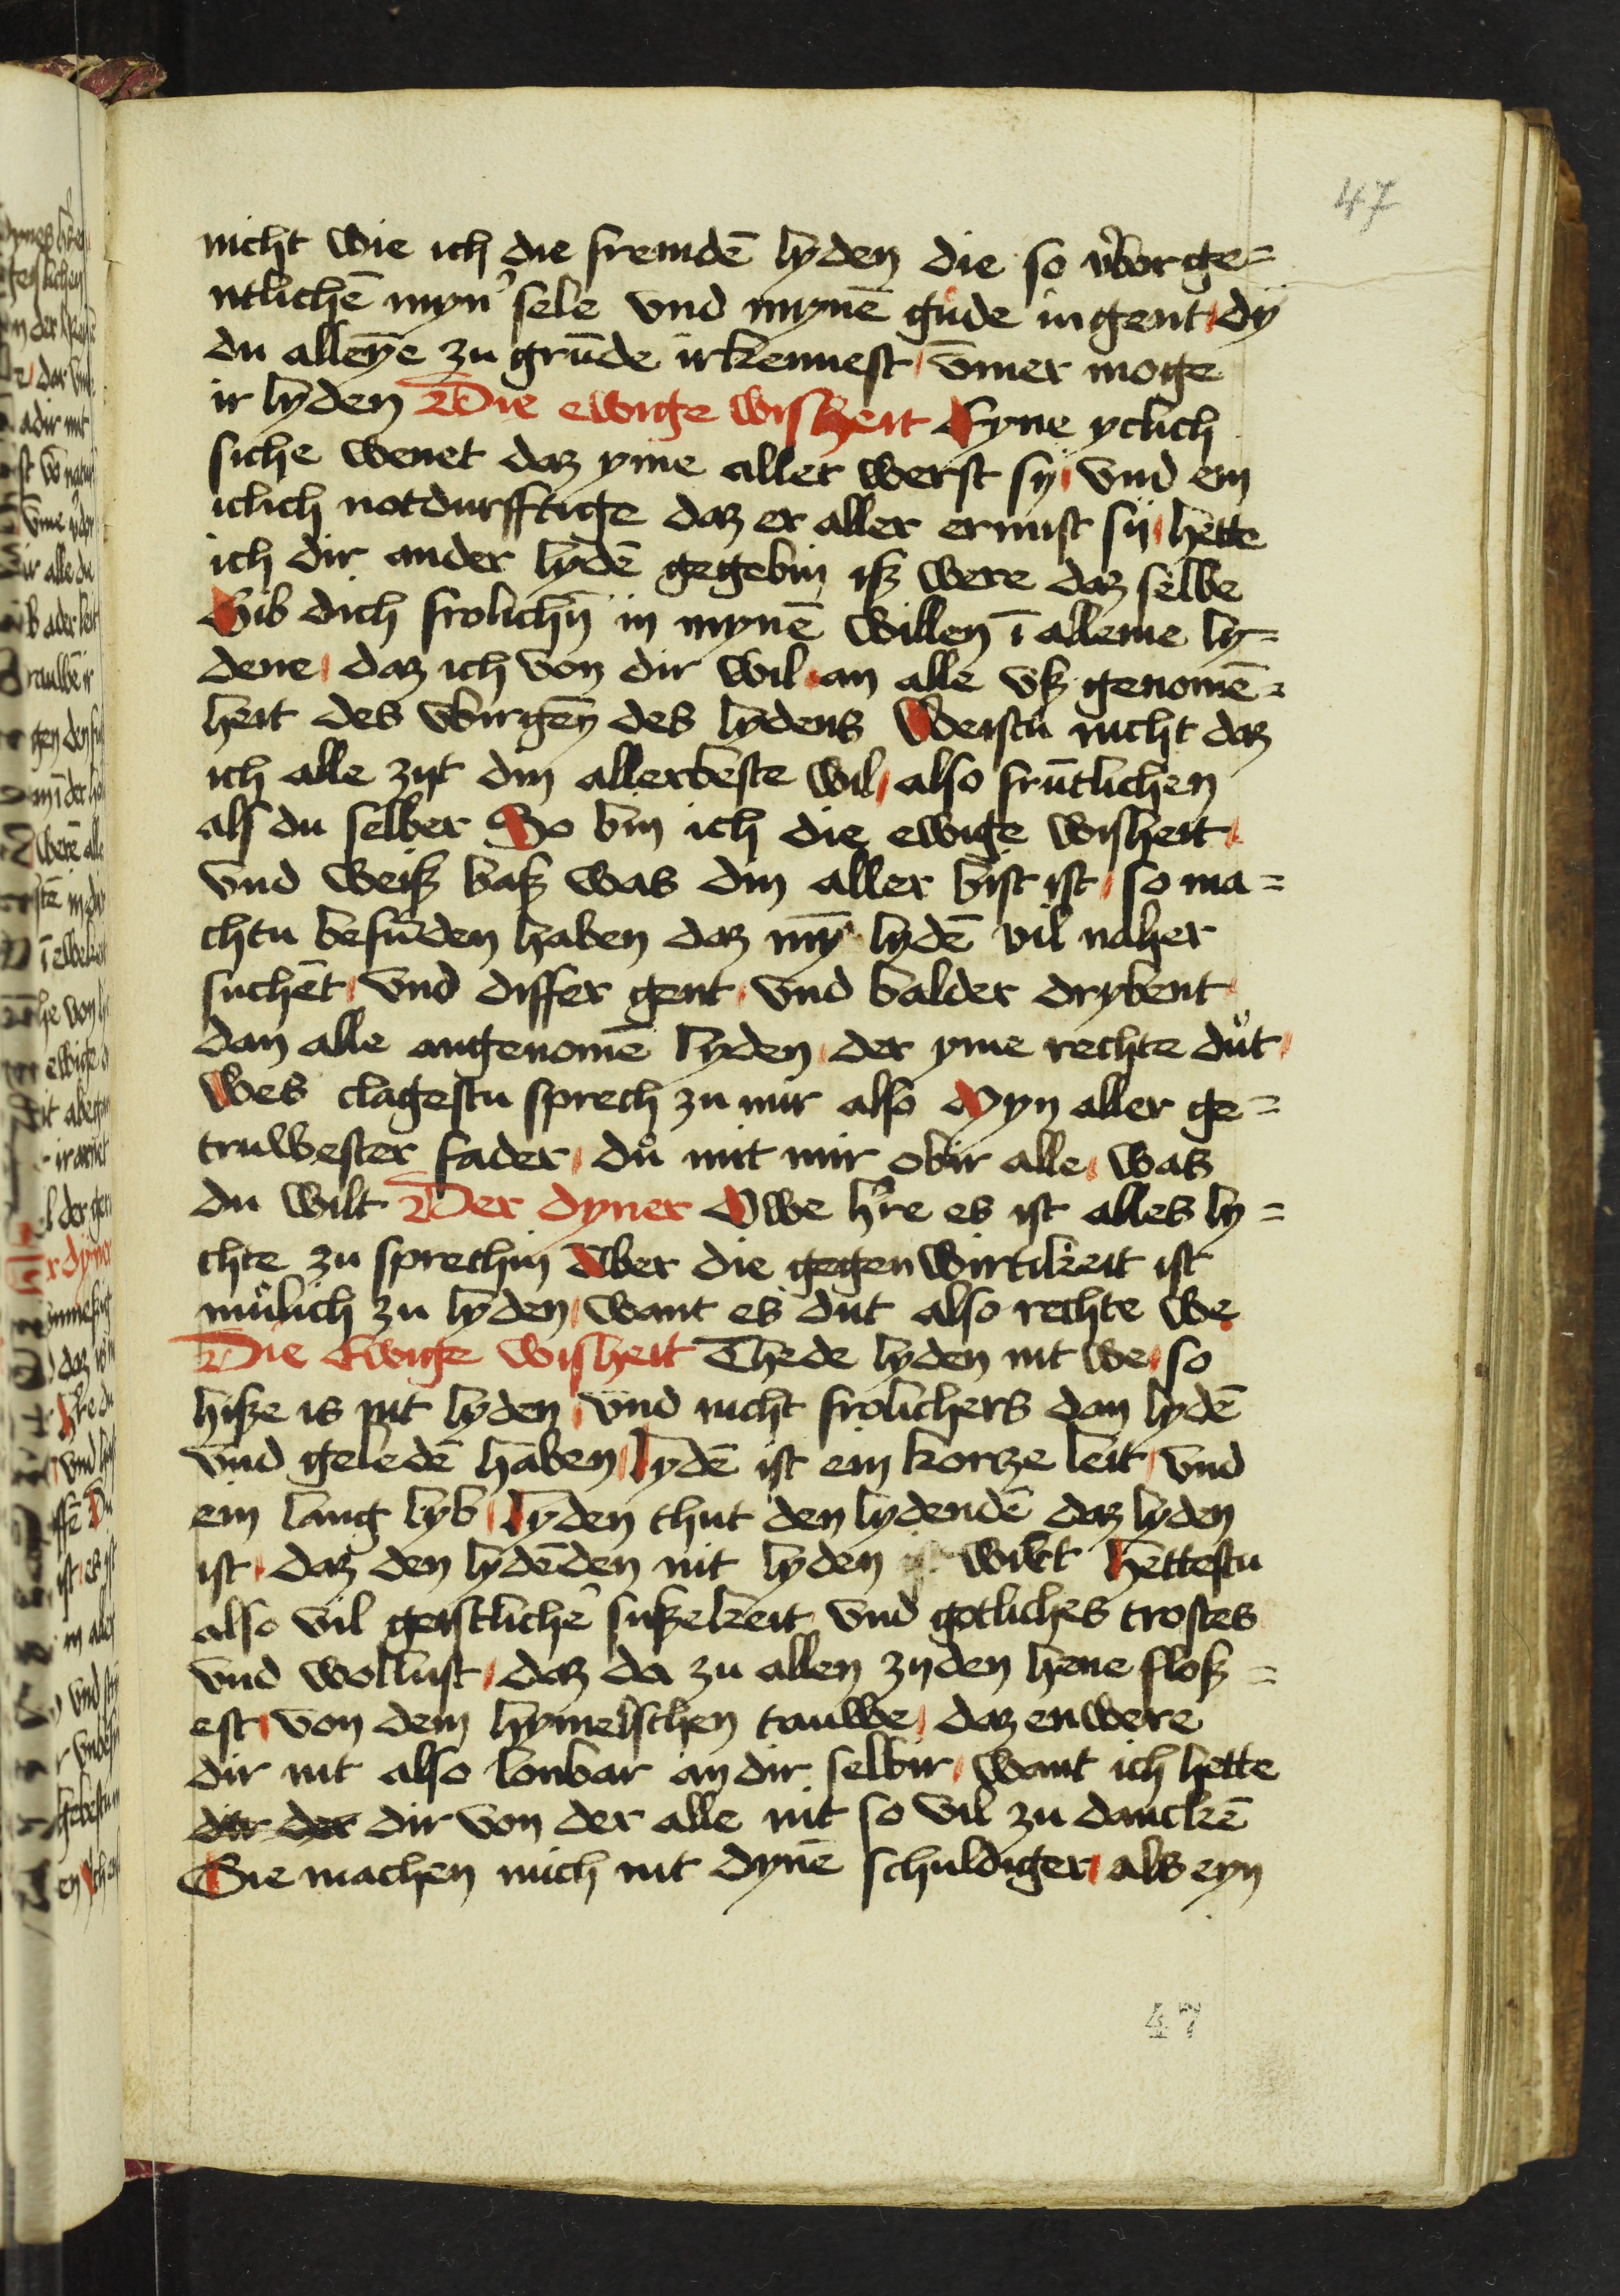 47
nicht wie ich die fremdē lyden die so v̾borge=
ntlichē myn̾ sele vnd mynē gude ingent dÿ
du alleȳe zu grūde irkennest v̄mer moge
ir lyden Die ewige wisheit Eyne yclich
siche wenet daz yme aller werst sÿ vnd ein
iclich notdurfftige daz er aller ermist sÿ hette
ich dir ander lydē gegebin iß were daz selbe
Gib dich frolichn̄ in mynē willen ī alleme ly=
dene daz ich von dir wil an alle vß genomē=
heit des vbirgen des lydens Weistu nicht daz
ich alle zijt din allerbeste wil also frūtlichen
als du selber So bin ich die ewige wisheit
vnd weiß baß was din aller bist ist so ma=
chtu befunden haben daz mȳ lydē vil naher
suchēt vnd differ gent vnd balder drybent
dan alle angenomē lyden der yme rechte důt
Wes clagestu sprech zu mir also Myn aller ge=
truwester fader důͦ mit mir obir alle was
du wilt Der dyner Owe h̾re es ist alles ly=
chte zu sprechin Aber die gegenwirtikeit ist
můlich zu lyden want es dut also rechte we
Die Ewige wisheit Thede lyden nit we so
hiße is nit lyden vnd nicht frolichers dan lydē
vnd geledē haben lydē ist ein korze leit vnd
ein lang lyb lyden thut den lydendē daz lyden
ist daz den lydēden nit lyden wirt Hettestu
also vil geistliche̾ sußekeit vnd gotliches trostes
vnd wollust daz da zu allen zijden hene floß=
est von dem hymelschen tauwe daz enwere
dir nit also lonbar an dir selbir want ich hette
dir der dir von der alle nit so vil zu danckē
Sie machen mich nit dynē schuldiger als eyn
47